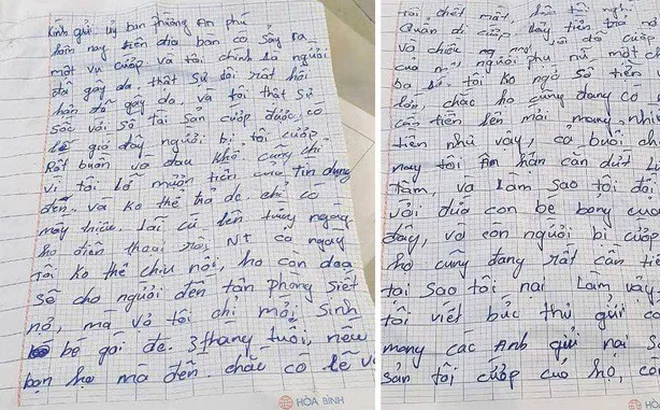 Kính gửi uỷ ban phường An phú
hôm nay trên địa bàn có sảy ra
một vụ cướp và tôi chính là người
đã gây da, thật sự tôi rất hối
hận đã gây da, và tôi thật sự
sốc với số tải sản cướp được, có
lẽ giờ đây người bị tôi cướp
Rất buồn và đau khổ cũng chỉ
vì tôi lỡ mượn tiền của tín dụng
đen. và ko thể trả da. chỉ có
mấy triệu. lãi cứ lên từng ngày
họ điện thoại rồi NT cả ngày
Tôi ko thể chịu nổi, họ còn doạ
sẽ cho người đến tận phòng siết
nợ, mà vợ tôi chỉ mới sinh
bé gái đc. 3 tháng tuổi, nếu
bọn họ mà đến. chắc có lẽ vợ
HÒA BÌNH
tôi chết mất,
Quẩn đi cướp lấy tiền trả nợ
và chiếc
của người phụ nữ một
tôi ko ngờ số tiền
lớn, chắc họ cũng đang có
cần tiền lên mới mang
tiền như vậy, cả buổi
nay tôi Ân hận cắn dứt
tâm, và làm sao tôi đối
với đứa con bé bỏng của
đây, và con người bị cướp
họ cũng đang rất cần
tại sao tôi nại làm vậy
tôi viết bức thư gửi
mong các Anh gửi nại
sản tôi cướp của họ, còn
HÒA BÌNH